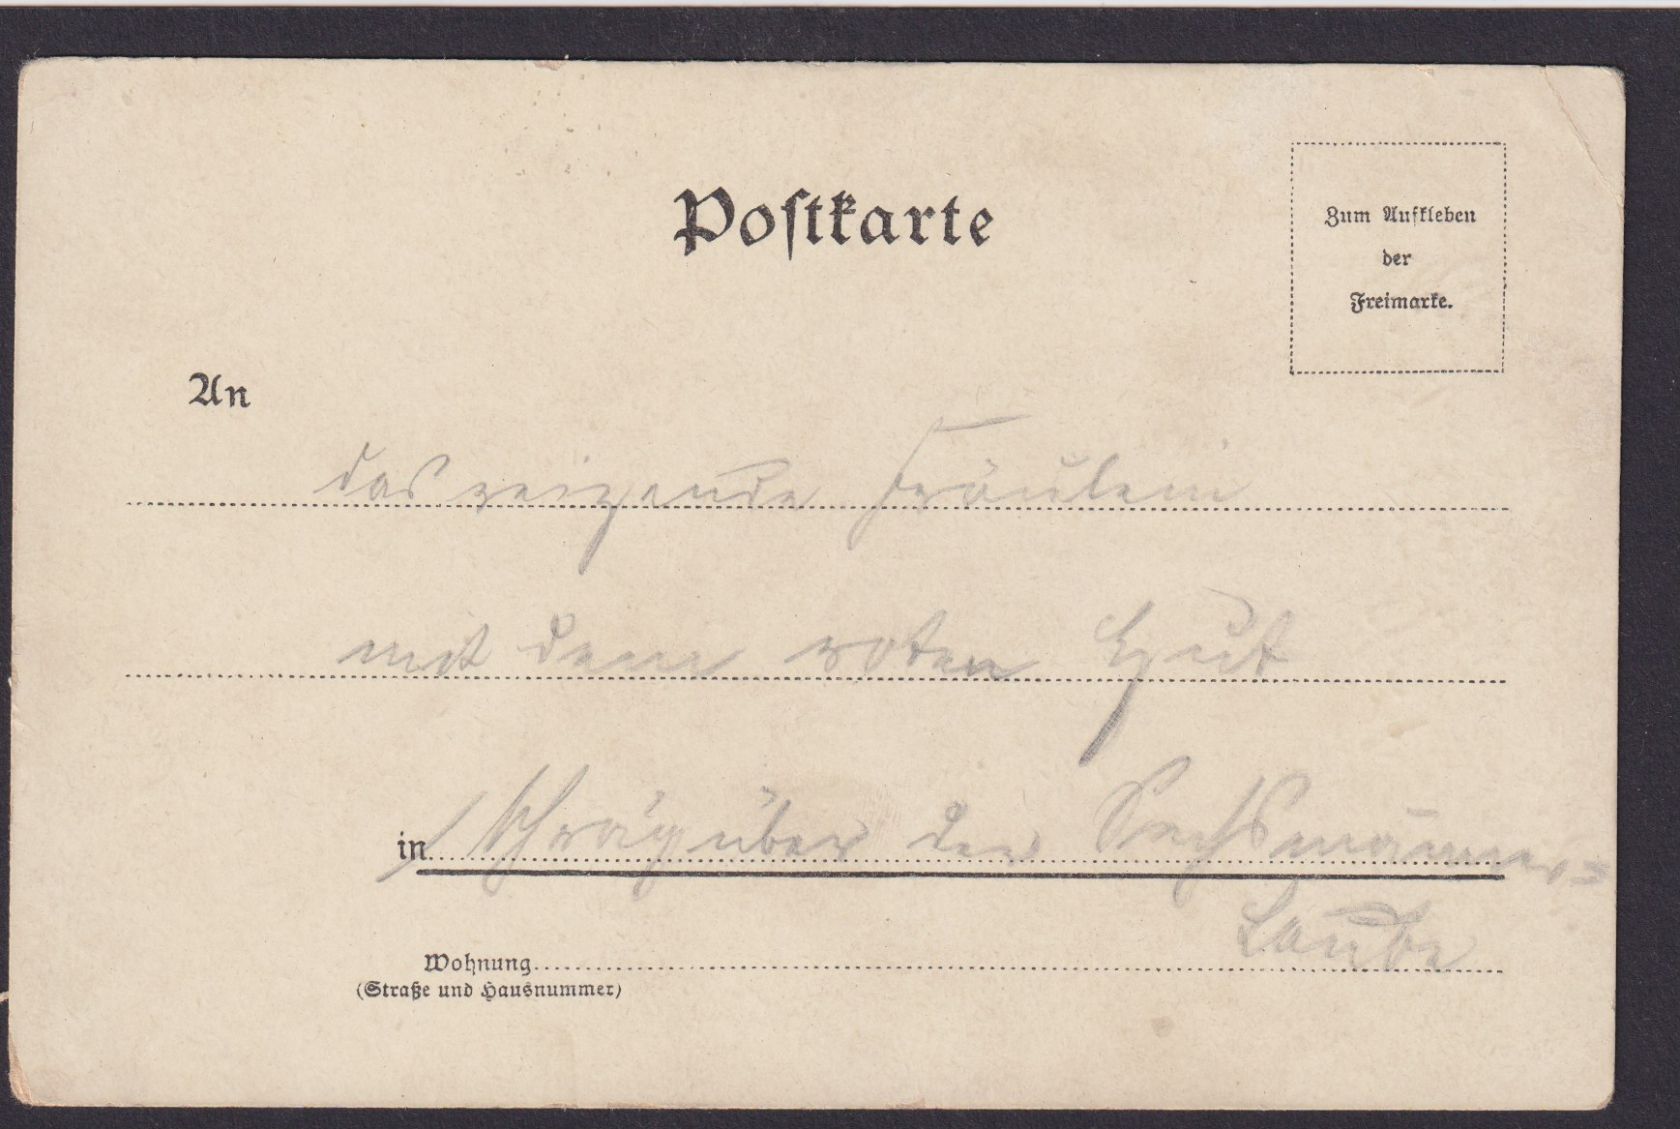 Postkarte
Zum Aufkleben
der
Freimarke.
An
das reizende Fräulein
mit dem roten Hut
in schräg über der Sechsmänner=
Laube
Wohnung
(Straße und Hausnummer)